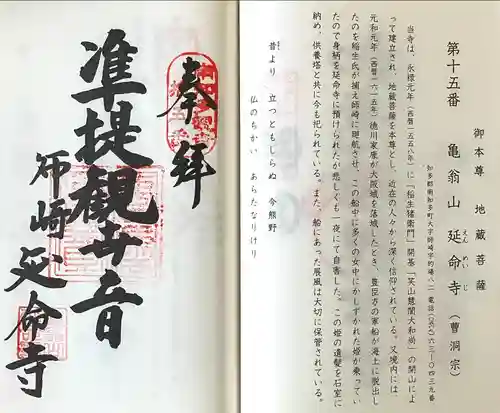 奉拝
准提観世音
師崎延命寺
第十五番
御本尊 地蔵菩薩
亀翁山 延命寺(曹洞宗)
えんめいじ
知多郡南知多町大字師崎字的場八二 電話(〇五六九)六三-〇四三九番
当寺は、永禄元年(西暦一五五八年)に「稲生猪衛門」開基「笑山慧誾大和尚」の開山によ
って建立され、地蔵菩薩を本尊とし、近在の人々から深く信仰されている。又境内には、
元和元年(西暦一六一五年)徳川家康が大阪城を落城したとき、豊臣方の軍船が海上に脱出し
たのを稲生氏が捕え師崎に廻航させ、この船中に多くの女中にかしずかれた姫が乗ってい
たので身柄を延命寺に預けられたが悲しくも一夜にて自害した。この姫の遺髪を石室に
納め、供養塔と共に今も祀られている。また、船にあった屏風は大切に保管されている。
昔より 立つともしらぬ 今熊野
仏のちかい あらたなりけり